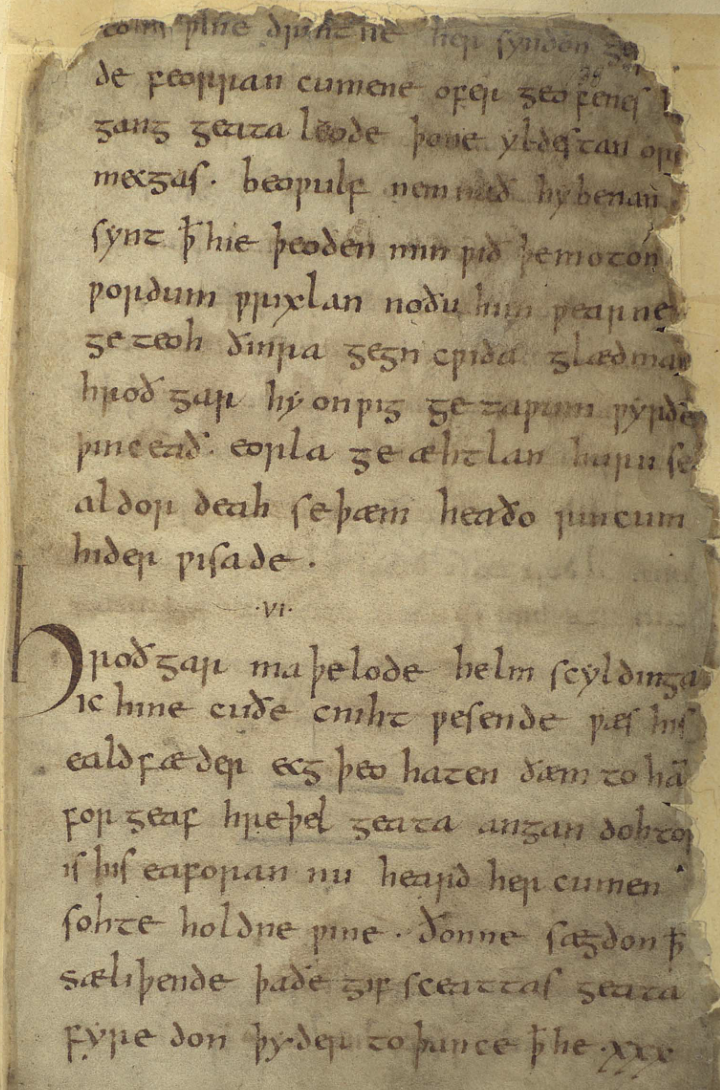 ƿine drihtne her syndon ge
de feorran cumene ofer geofenes
gang geata leode þone yldestan oret
mecgas · beoƿulf nemnað hy benan
synt ꝥ hie þeoden min ƿið þe moton
ƿordum ƿrixlan no ðu him ƿearne
ge teoh ðinra gegn cƿida glædman
hroð gar hy on ƿig ge taƿum ƿyrðe
þinceað eorla ge æhtlan huru se
aldor deah se þæm heaðo rincum
hider ƿisade ·
·VI·
Hroð gar maþelode helm scyldinga
ic hine cuðe cniht ƿesende ƿæs his
eald fæder ecg þeo haten ðæm to hā
for geaf hreþel geata angan dohtor
is his eaforan nu heard her cumen
sohte holdne ƿine · ðonne sægdon ꝥ
sæliþende þa ðe gif sceattas geata
fyre don þyder to þance ꝥ he ·xxx